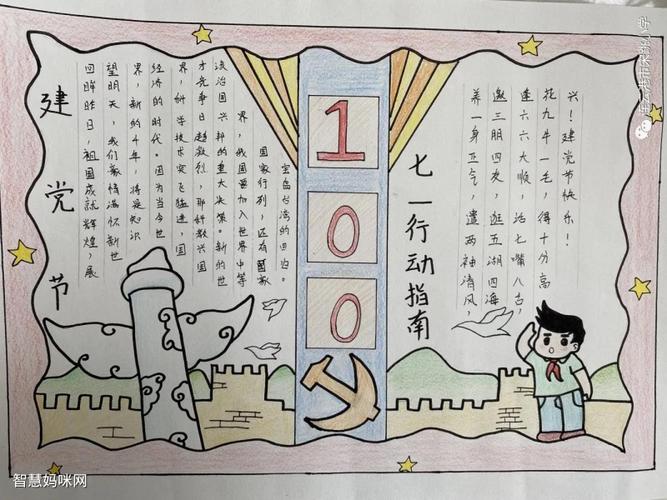 建党节
回眸昨日，祖国成就辉煌，展
望明天，我们豪情满怀新世
界，新的4年，将是知识
经济的时代。因为当今世
界，科学技术突飞猛进，国
才竞争日趋激烈，那科教兴国
政治国兴邦的重大决策。新的世
界，我国要加入世界中等
国家行列，还有国家
宝岛台湾的回归。
100
七一行动指南
养一身正气，遣两袖清风，
邀三朋四友，逛五湖四海
逢六六大顺，活七嘴八舌，
花九牛一毛，得十分高
兴！建党节快乐！
智慧妈咪网